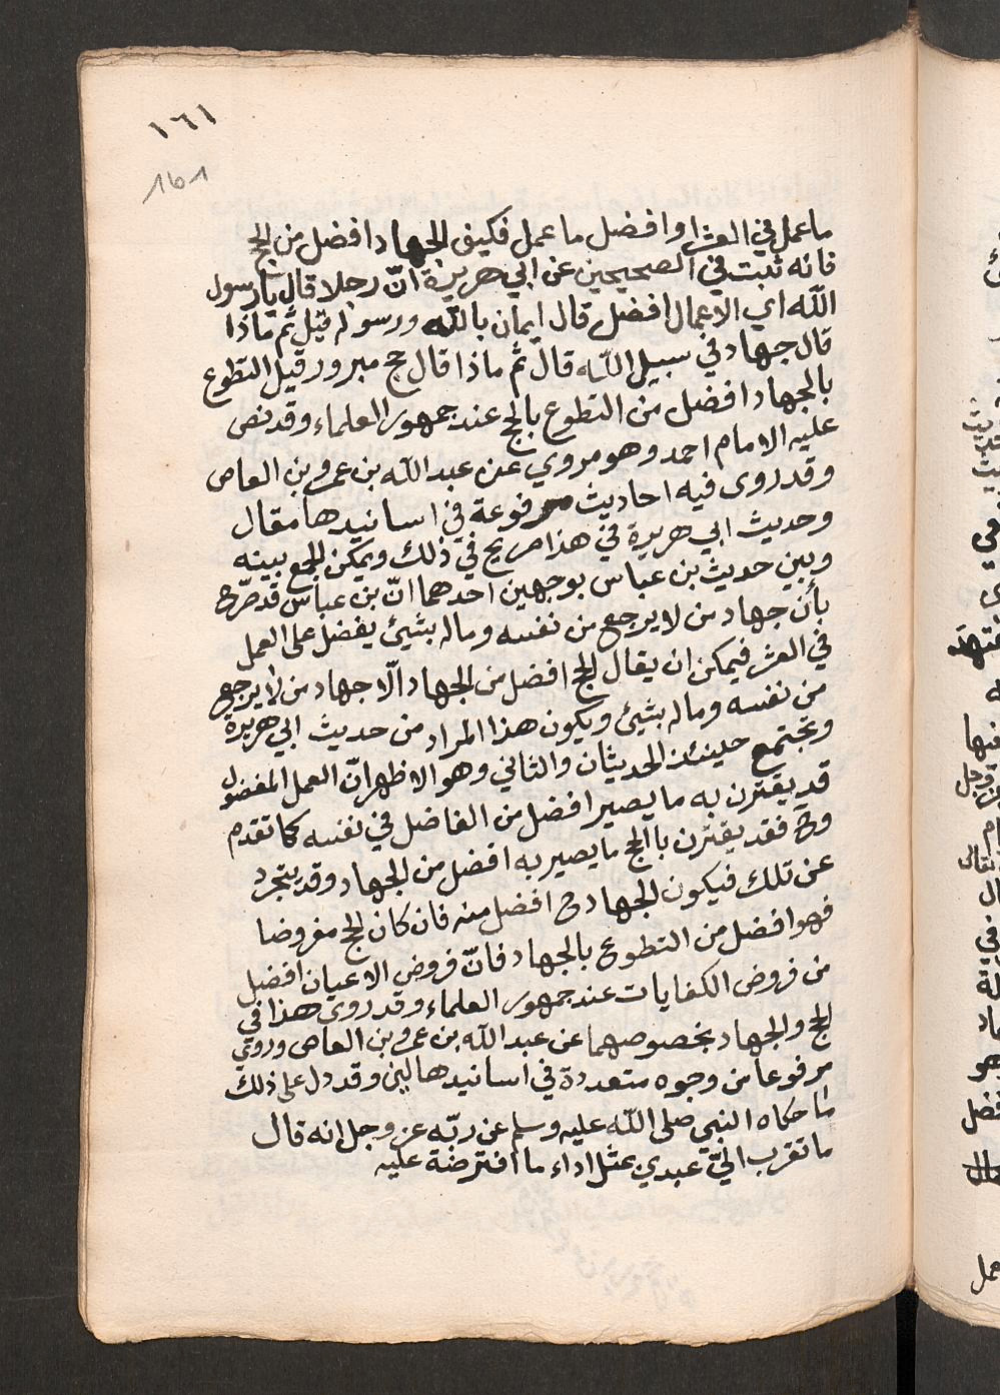 ١٦١
161
ما عمل في العشر او افضل ما عمل فكيف الجهاد افضل من الحج
فانه ثبت في الصحيحين عن ابي هريرة انّ رجلا قال يا رسول
الله اي الاعمال افضل قال ايمان بالله ورسوله قيل ثم ماذا
قال جهاد في سبيل الله قال ثم ماذا قال حج مبرور قيل التطوع
بالجهاد افضل من التطوع بالحج عند جمهور العلماء وقد نص
عليه الامام احمد وهو مروي عن عبد الله بن عمرو بن العاص
وقد روى فيه احاديث مرفوعة في اسانيدها مقال
وحديث ابي هريرة في هذا صريح في ذلك ويمكن الجمع بينه
وبين حديث بن عباس بوجهين احدهما انّ بن عباس قد صرّح
بأن جهاد من لا يرجع من نفسه وماله بشيئ يفضل على العمل
في العشر فيمكن ان يقال الحج افضل من الجهاد الّا جهاد من لا يرجع
من نفسه وماله بشيئ ويكون هذا المراد من حديث ابي هريرة
وتجتمع حينئذ الحديثان والثاني وهو الاظهر انّ العمل المفضول
قد يقترن به ما يصير افضل من الفاضل في نفسه كما تقدم
وح فقد يقترن باالحج ما يصير به افضل من الجهاد وقد يتجرد
عن تلك فيكون الجهاد ح افضل منه فان كان الحج مفروضا
فهو افضل من التطوع بالجهاد فانّ فروض الاعيان افضل
من فروض الكفايات عند جمهور العلماء وقد روى هذا في
الحج والجهاد بخصوصهما عن عبد الله بن عمرو بن العاص وروي
مرفوعا من وجوه متعددة في اسانيدها لين وقد دل على ذلك
ما حكاه النبي صلى الله عليه وسلم عن ربّه عز وجل انه قال
ما تقرب اليّ عبدي بمثل اداء ما افترضة عليه